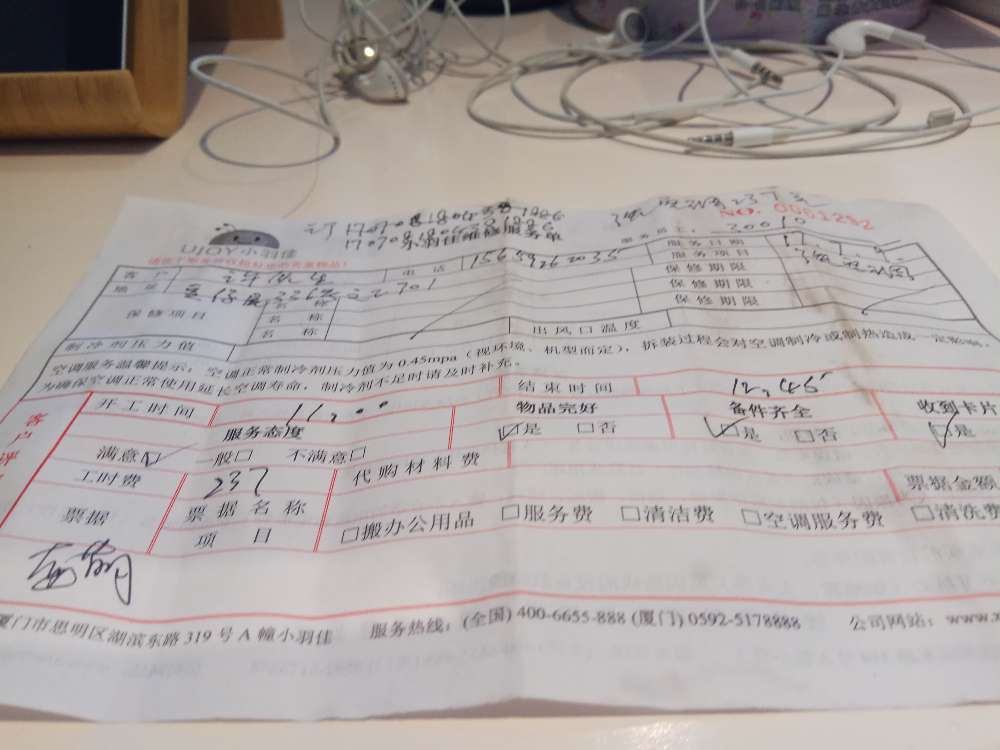 NO. 0051252
UJOY小羽佳
小羽佳维修服务单
客户
电话 15659262035
服务日期
地址
服务项目
保修项目
名称
保修期限
名称
保修期限
名称
保修期限
制冷剂压力值
出风口温度
空调服务温馨提示:空调正常制冷剂压力值为0.45mpa(视环境、机型而定),拆装过程会对空调制冷或制热造成一定影响。
为确保空调正常使用延长空调寿命,制冷剂不足时请及时补充。
开工时间 11:00
结束时间 12:45
客户评
服务态度
物品完好
备件齐全
收到卡片
满意□ 一般□ 不满意□
□是 □否
□是 □否
□是
工时费 237
代购材料费
票据
票据名称
票据金额
项目
□搬办公用品 □服务费 □清洁费 □空调服务费 □清洗费
厦门市思明区湖滨东路319号A幢小羽佳 服务热线:(全国)400-6655-888 (厦门)0592-5178888 公司网站:www.x